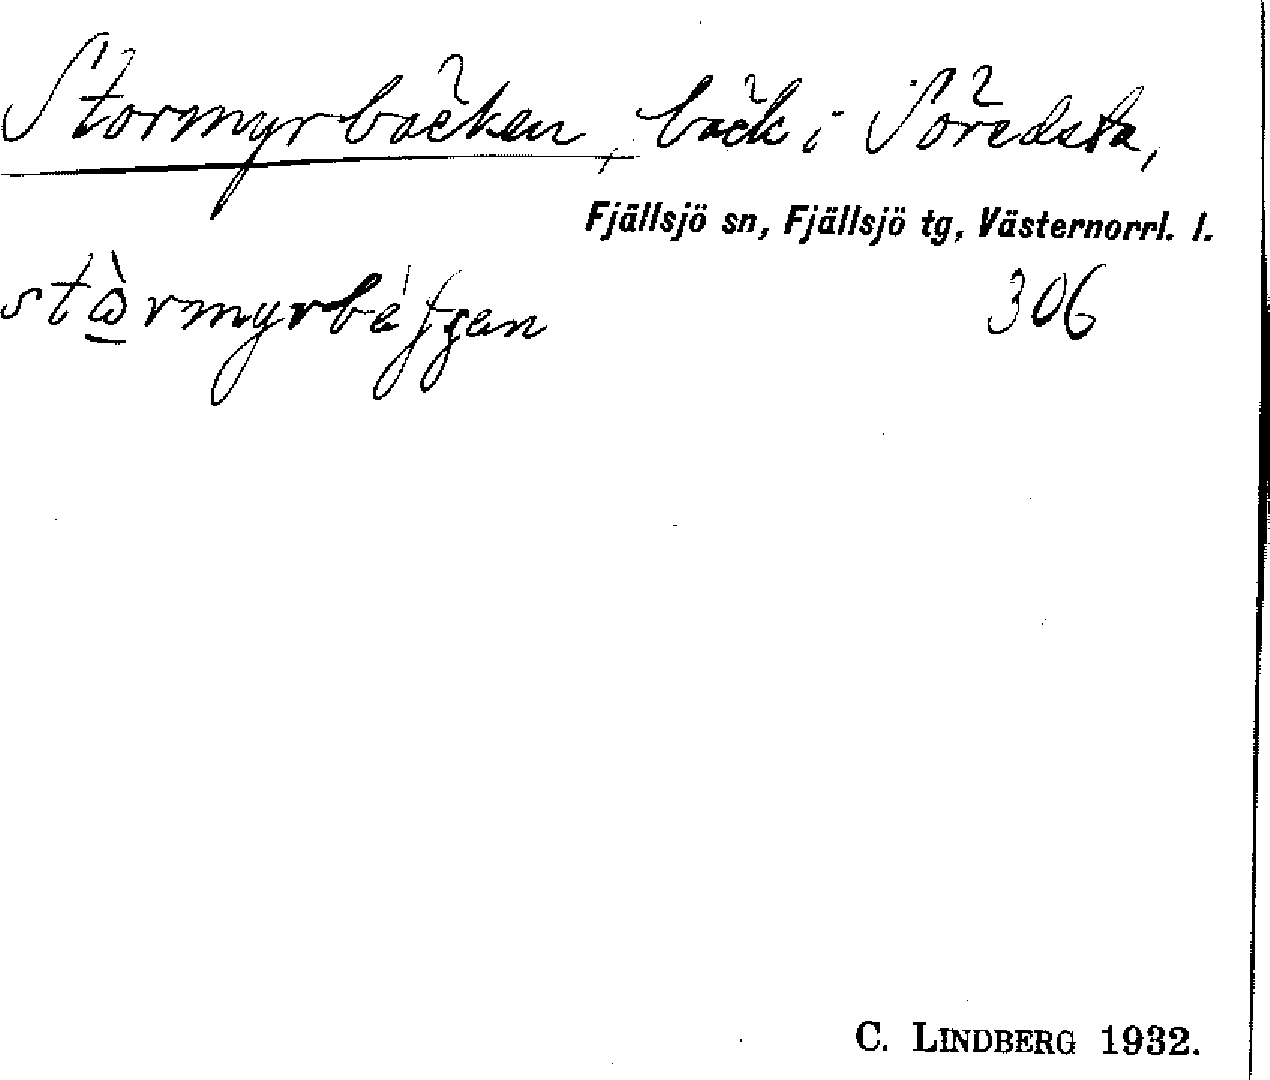 Stormyrbäcken, bäck i Söredsta,
Fjällsjö sn, Fjällsjö tg, Västernorrl. l.
306
C. LINDBERG 1932.